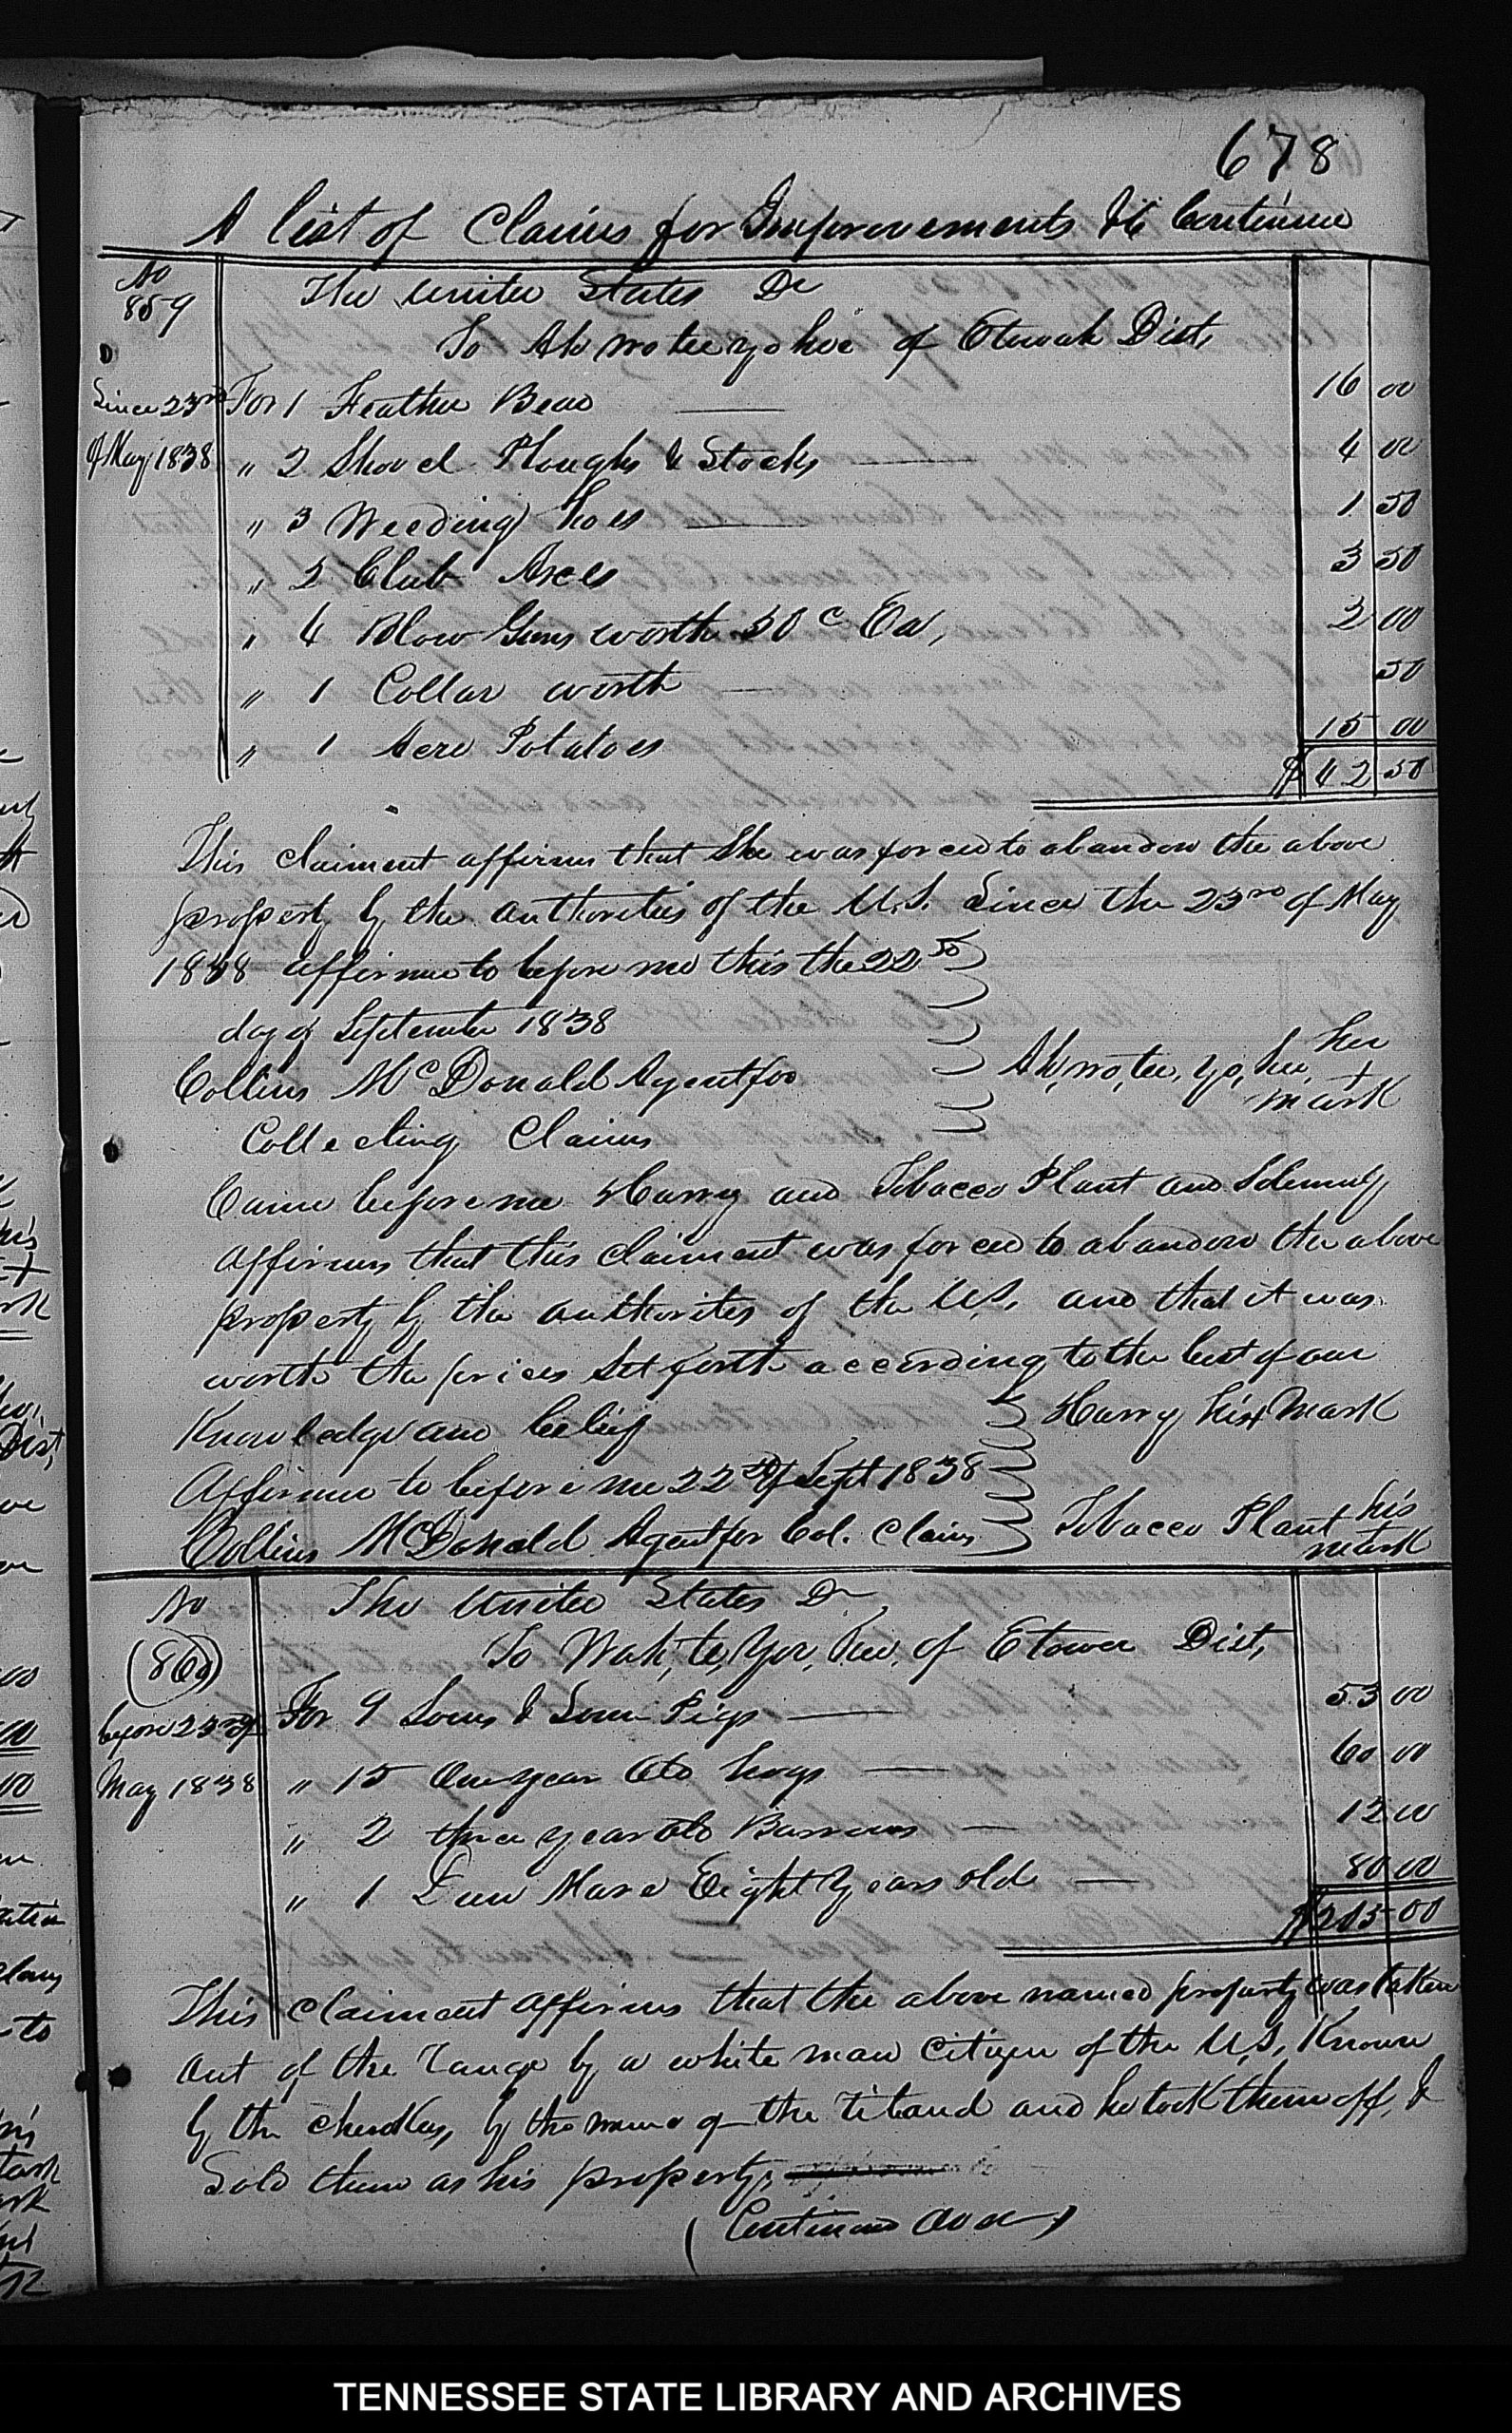 678
A list of Claims for Improvements &c Continued
No
859
The United States Dr
To Ah no tee yo hee of Etowah Dist,
Since 23rd
of May 1838
For 1 Feather Bead 16 00
" 2 Shovel Ploughs & Stocks 4 00
" 3 Weeding hoes 1 50
" 2 Club Axes 3 50
" 4 Blow Guns worth 50 c Ea, 2 00
" 1 Collar worth 50
" 1 Acre Potatoes 15 00
$ 42 50
This claiment affirms that She was forced to abandon the above
property by the authorities of the U.S. Since the 23rd of May
1838 affirmed to before me this the 22nd
day of September 1838
Collins McDonald Agent for
Collecting Claims
Ah, no, tee, yo, hee, her
+
mark
Came before me Harry and Tobacco Plant and Solemnly
affirms that this claiment was forced to abandon the above
property by the authorites of the US, and that it was
worth the prices Set forth according to the best of our
Knowledge and belief
Harry his x Mark
Affirmed to before me 22nd of Sept 1838
Collins McDonald Agent for Col. Claims
Tobacco Plant his
mark
No
(860)
The United States Dr,
To Wah, te, yor, hee, of Etower Dist,
before 23rd of
May 1838
For 9 Sows & Some Pigs 53 00
" 15 One year Old hogs 60 00
" 2 three year old Barrows 12 00
" 1 Dun Mare Eight Years old 80 00
$205 00
This claiment affirms that the above named property was taken
out of the range by a white man Citizen of the U,S, Known
by the cherokees, by the name of the and he took them off, &
Sold them as his property,
(Continued Over)
TENNESSEE STATE LIBRARY AND ARCHIVES